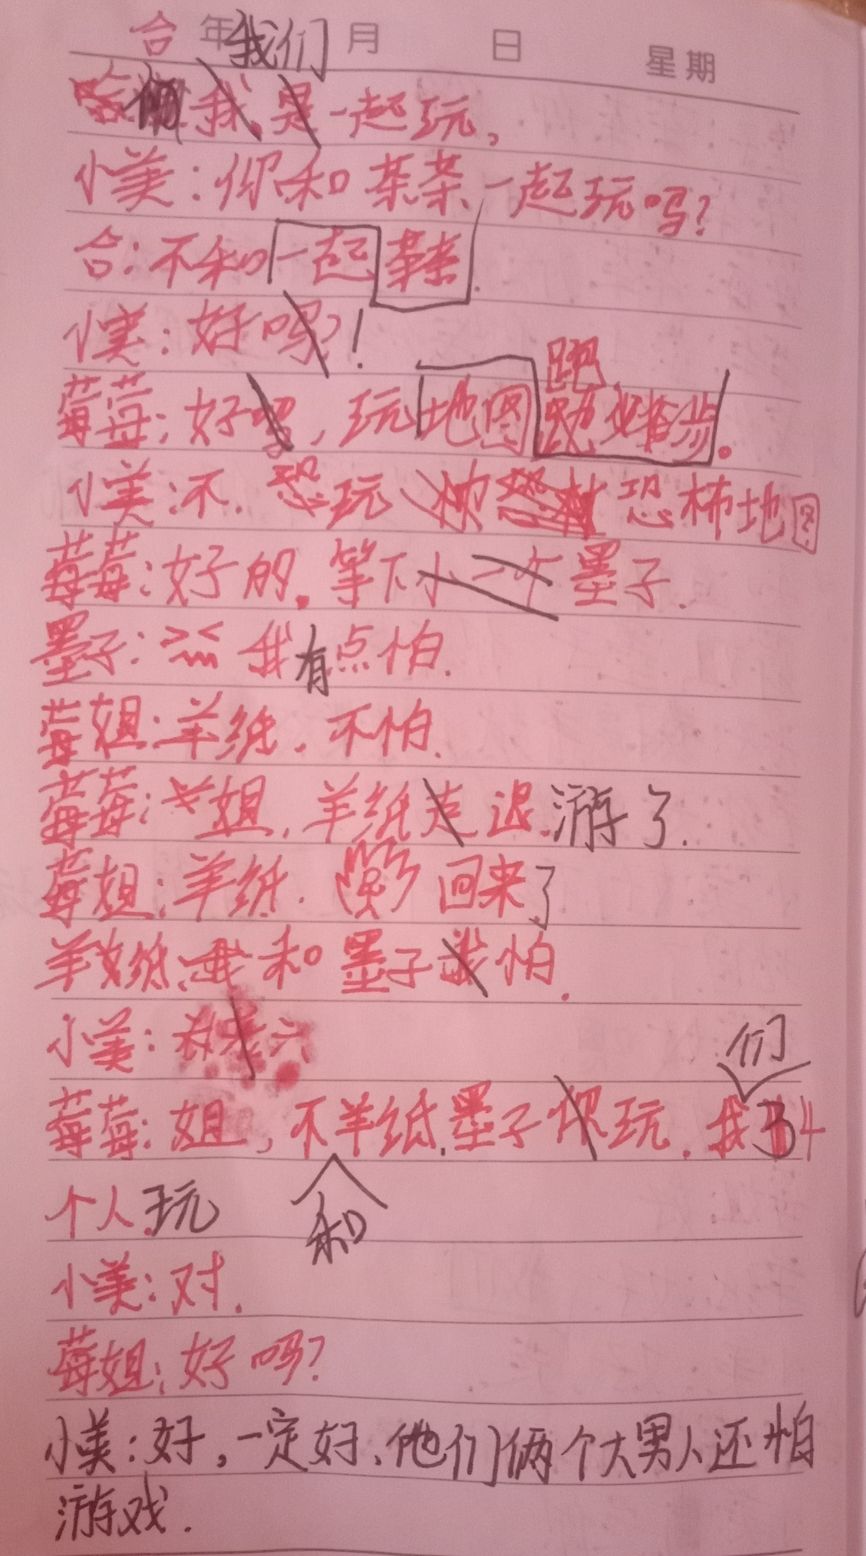 合 年 我们 月 日 星期
我是一起玩,
小美:你和茶茶一起玩吗?
合:不和一起茶茶.
小美:好吗?!
跑
莓莓:好吗,玩地图跑步。
小美:不.恐玩恐怖地图
莓莓:好的.等下小一个墨子.
墨子: 我有点怕.
莓姐:羊纸.不怕.
莓莓:姐,羊纸走退.游了.
莓姐:羊纸. 回来了
羊纸:我和墨子我怕.
小美:
们
莓莓:姐,不羊纸.墨子你玩.我34
个人.玩
和
小美:对.
莓姐:好吗?
小美:好,一定好、他们俩个大男人还怕
游戏.